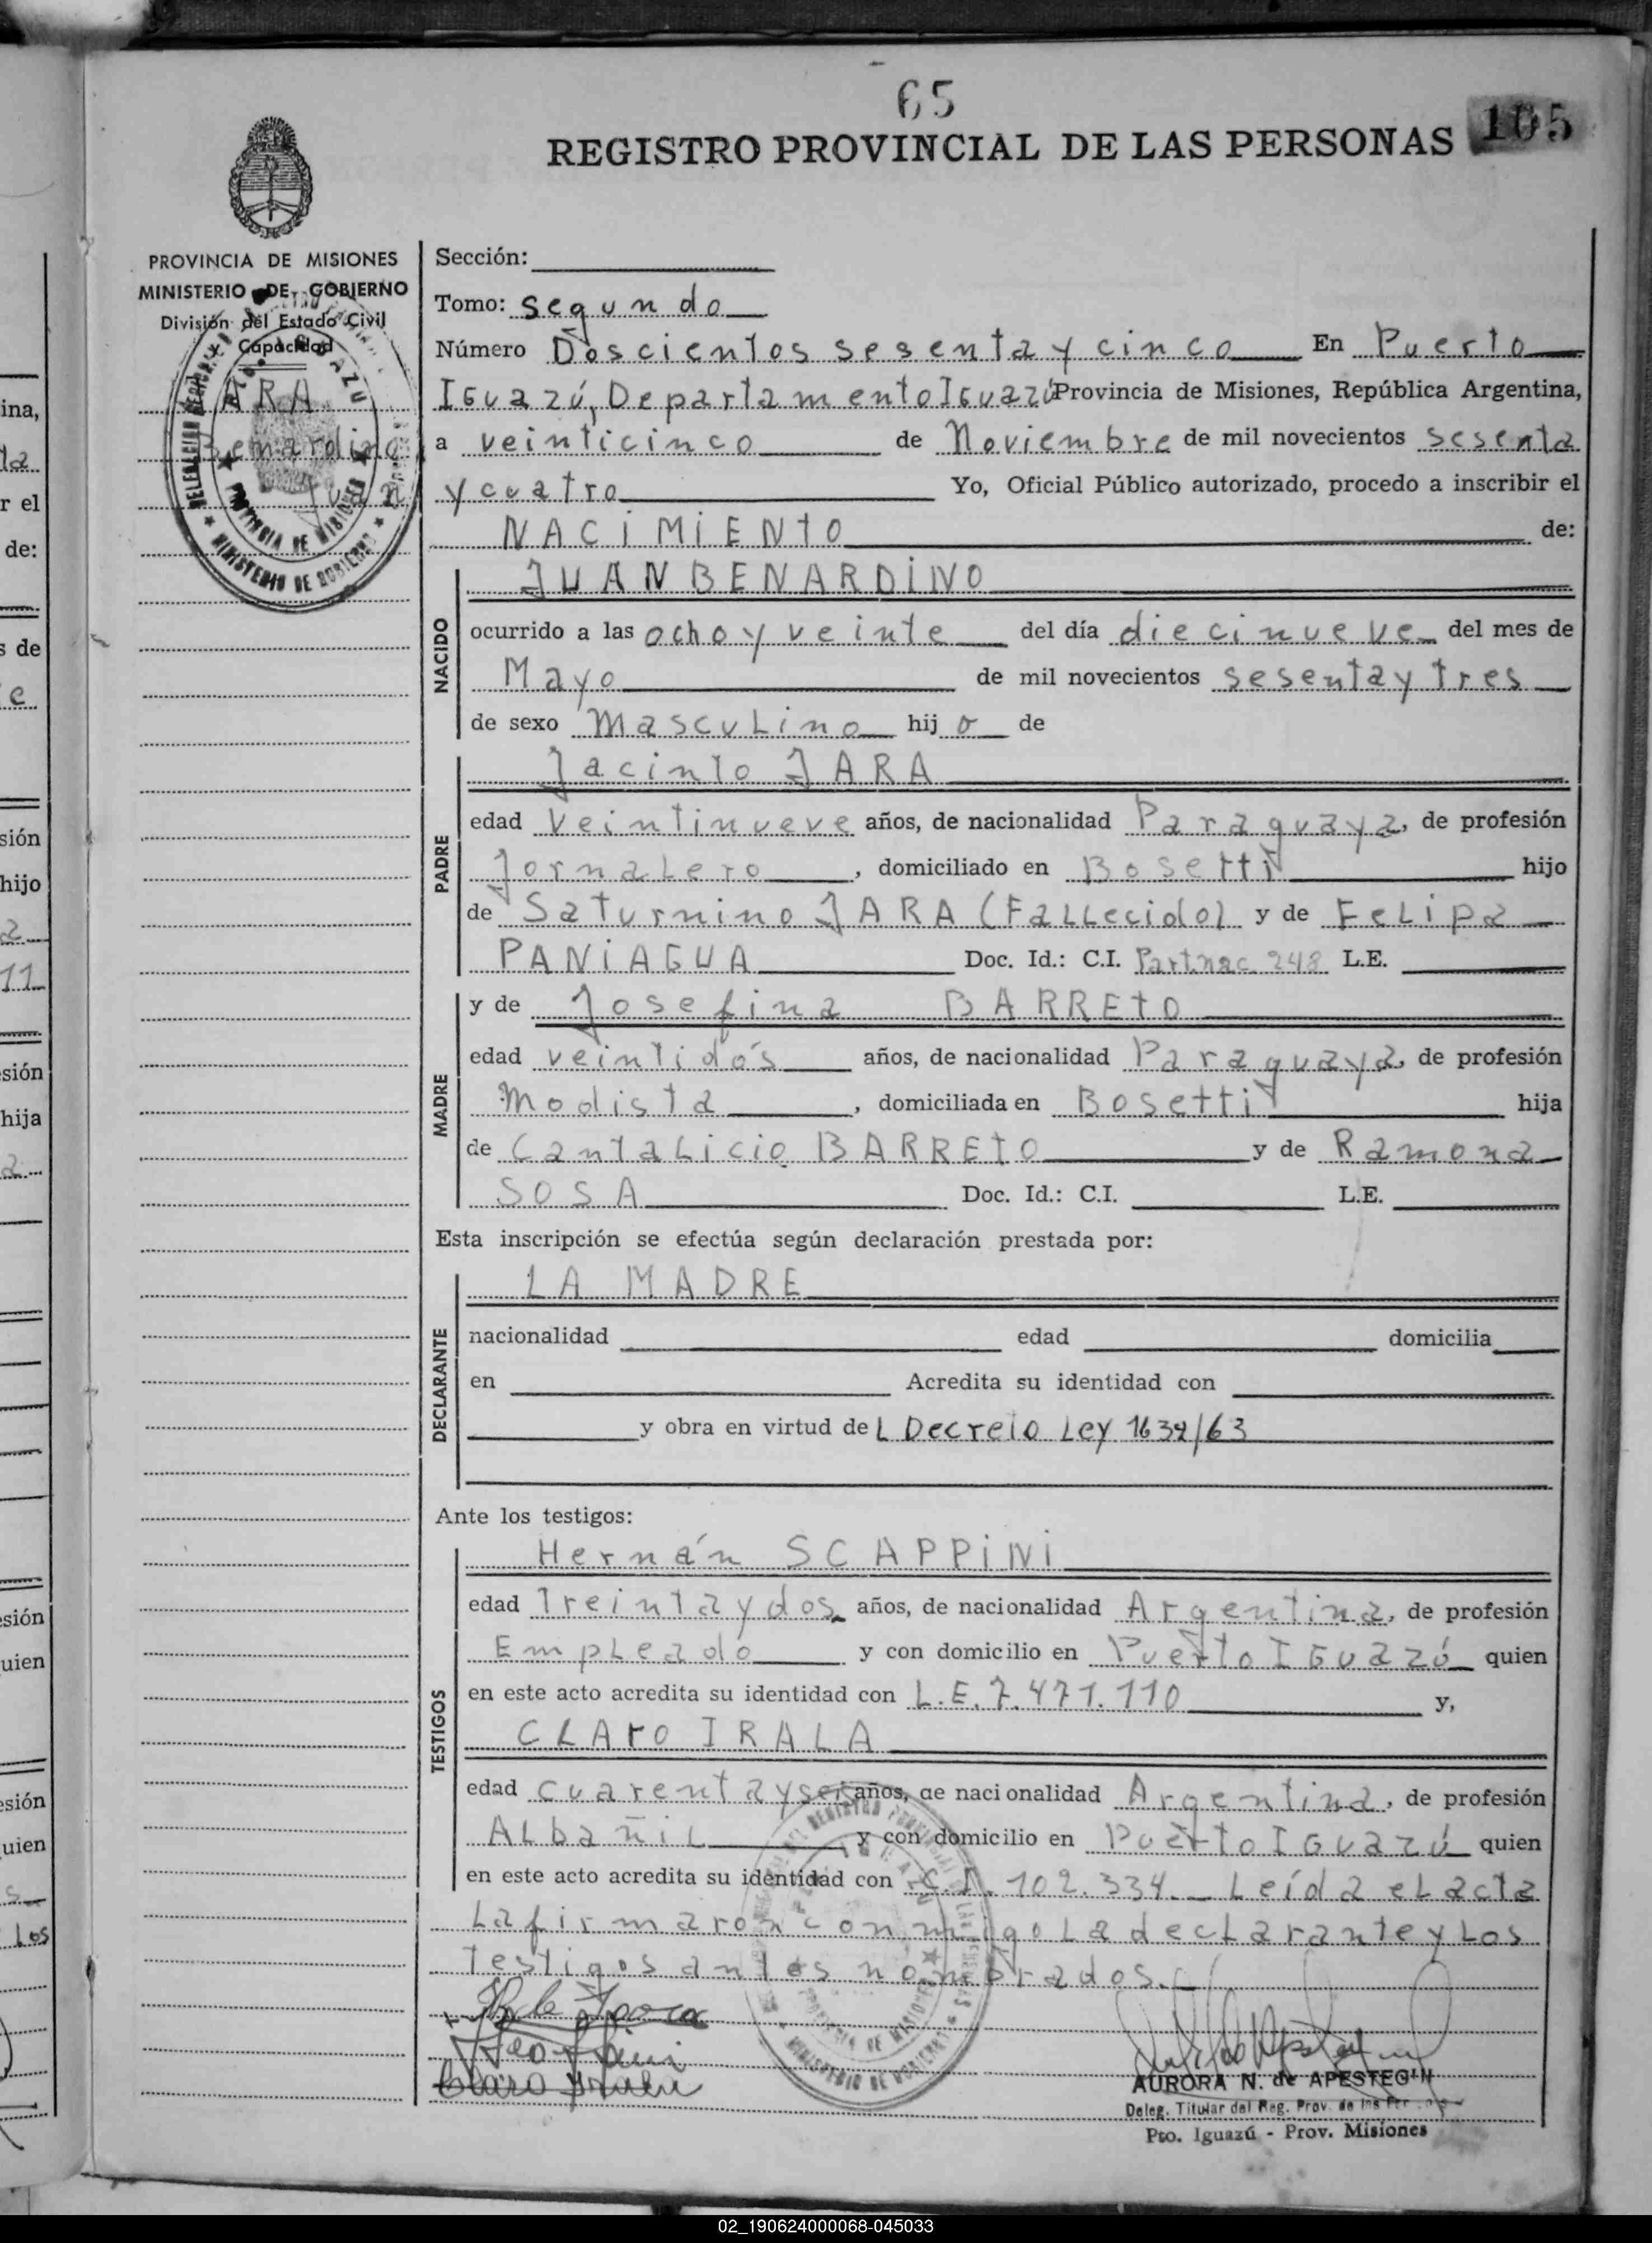 65
REGISTRO PROVINCIAL DE LAS PERSONAS 105
PROVINCIA DE MISIONES
MINISTERIO DE GOBIERNO
División del Estado Civil
Capacidad
JARA
Bernardino
Juan
Sección:
Tomo: segundo
Número Doscientos sesenta y cinco En Puerto
Iguazú, Departamento Iguazú Provincia de Misiones, República Argentina,
a veinticinco de Noviembre de mil novecientos sesenta
y cuatro Yo, Oficial Público autorizado, procedo a inscribir el
NACIMIENTO de:
NACIDO
JUAN BENARDINO
ocurrido a las ocho y veinte del día diecinueve del mes de
Mayo de mil novecientos sesenta y tres
de sexo Masculino hijo de
PADRE
Jacinto JARA
edad Veintinueve años, de nacionalidad Paraguaya, de profesión
Jornalero, domiciliado en Bosetti hijo
de Saturnino JARA (Fallecido) y de Felipa
PANIAGUA Doc. Id.: C.I. Part.nac. 248 L.E.
MADRE
y de Josefina BARRETO
edad veintidós años, de nacionalidad Paraguaya, de profesión
Modista, domiciliada en Bosetti hija
de Cantalicio BARRETO y de Ramona
SOSA Doc. Id.: C.I. L.E.
Esta inscripción se efectúa según declaración prestada por:
DECLARANTE
LA MADRE
nacionalidad edad domicilia
en Acredita su identidad con
y obra en virtud del Decreto Ley 1639/63
Ante los testigos:
TESTIGOS
Hernán SCAPPINI
edad Treinta y dos años, de nacionalidad Argentina, de profesión
Empleado y con domicilio en Puerto Iguazú quien
en este acto acredita su identidad con L.E. 7.471.110 y,
CLAro IRALA
edad cuarenta y seis años, de nacionalidad Argentina, de profesión
Albañil y con domicilio en Puerto Iguazú quien
en este acto acredita su identidad con C.I. 102.334. Leída el acta
la firmaron conmigo la declarante y los
testigos antes nombrados.
Claro Irala
AURORA N. de APESTEGUI
Deleg. Titular del Reg. Prov. de las Personas
Pto. Iguazú - Prov. Misiones
02_190624000068-045033